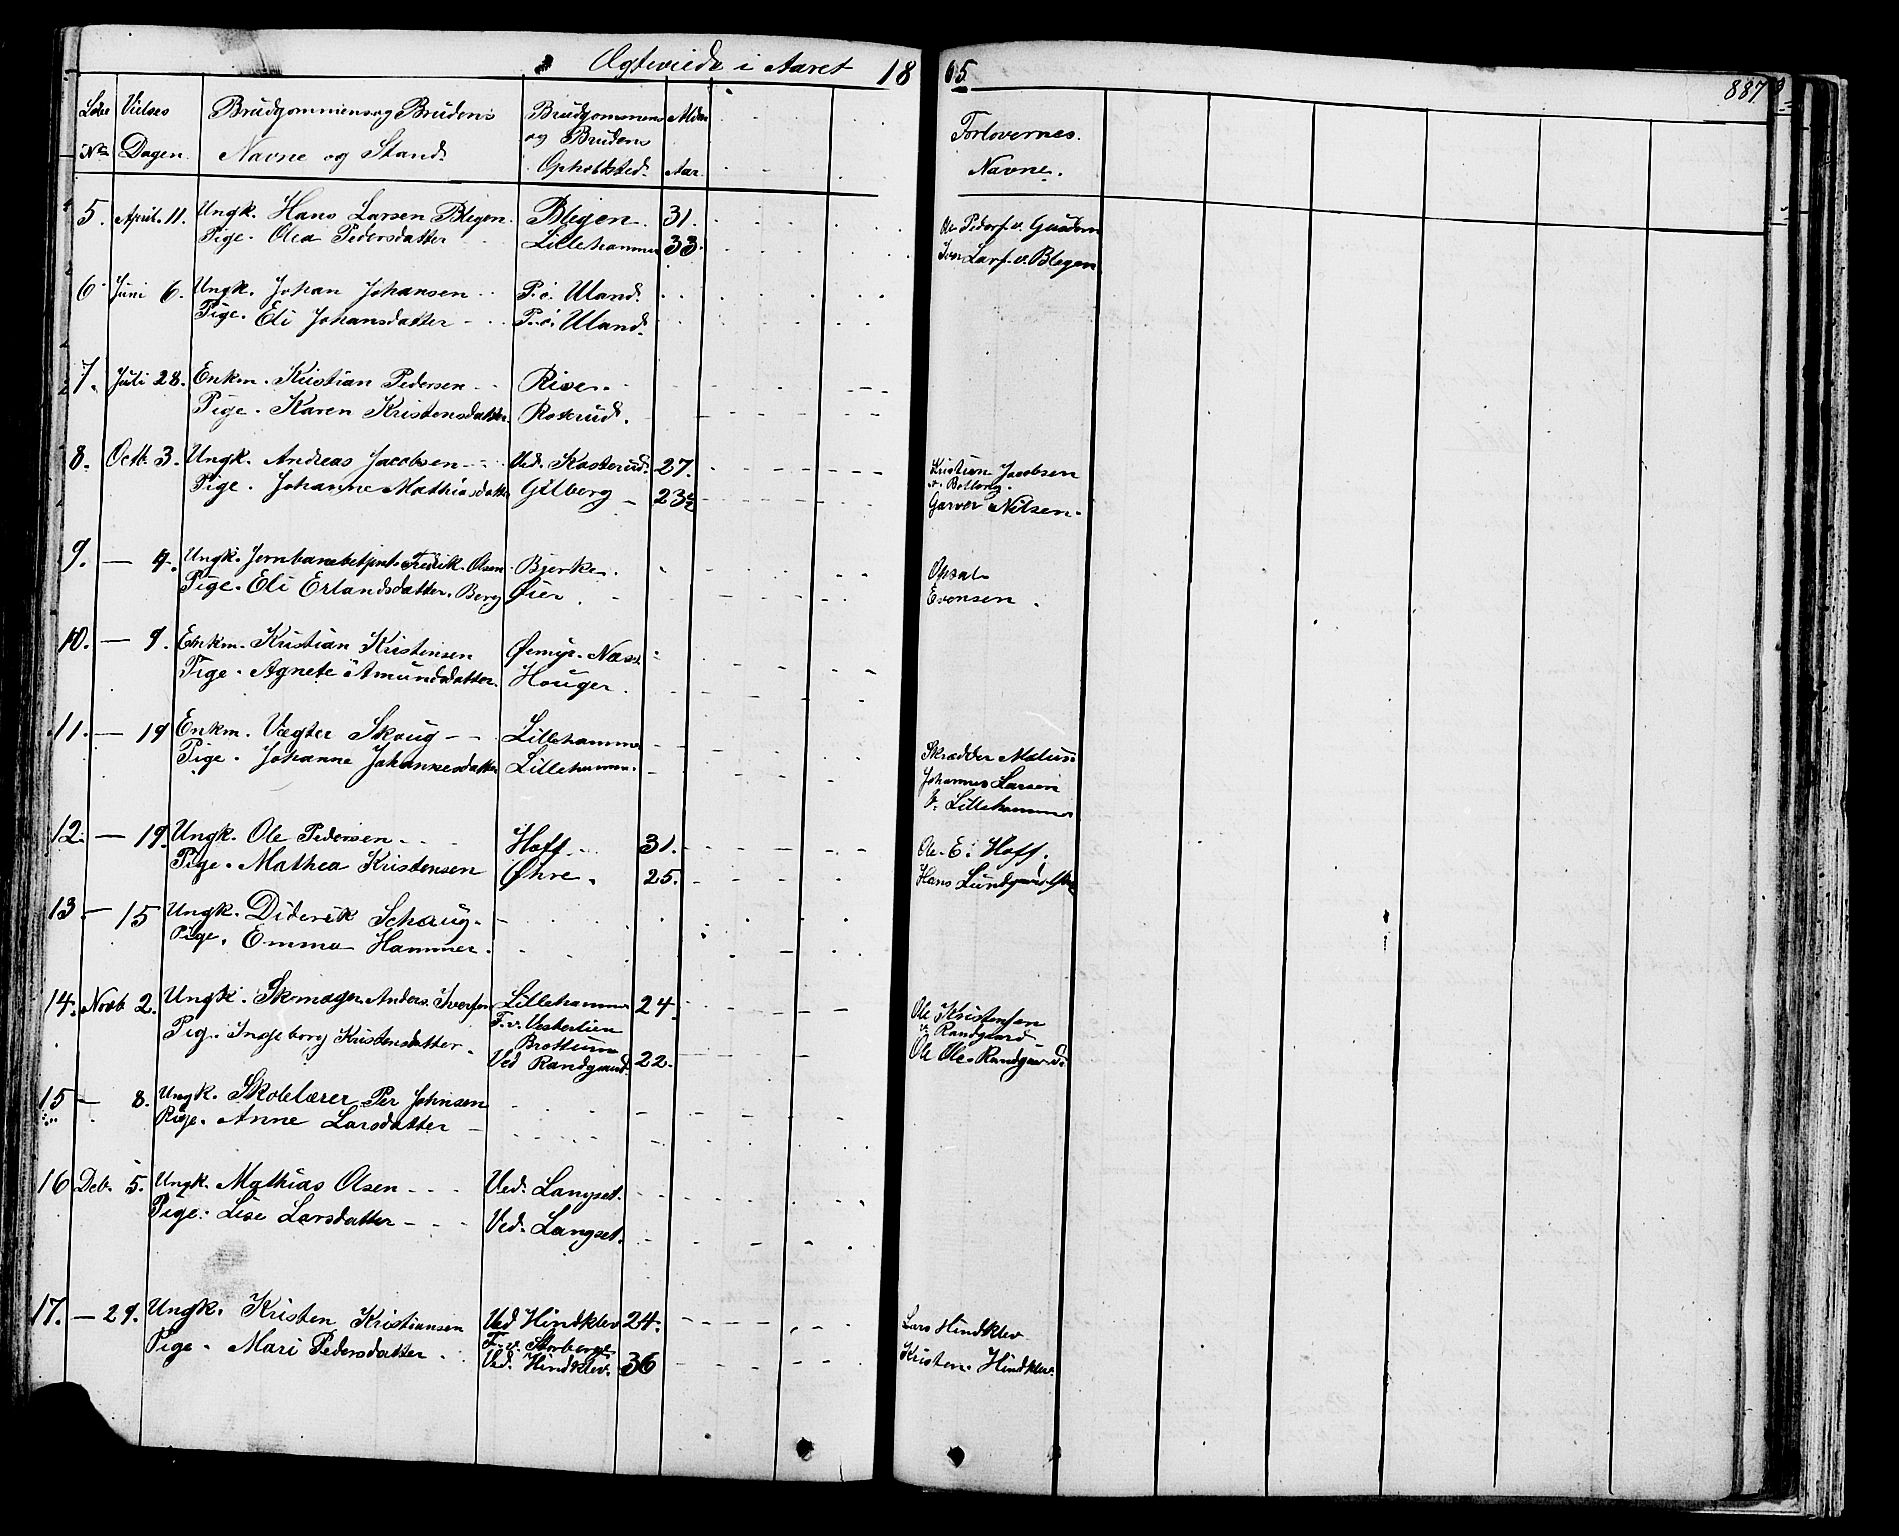 Ægteviede i Aaret 1865
887
Løbe Nr. Vielses Dagen. Brudgommens og Brudens Navne og Stand. Brudgommens og Brudens Opholdsted. Alder Aar. Forlovernes Navne.
5. April. 11. Ungk. Hans Larsen Blegen. Blegen. 31. Ole Pedersf. v.
Pige. Olea Pedersdatter Lillehammer 33. Larsf. v. Blegen
6. Juni 6. Ungk. Johan Johansen P. ø. Uland.
Pige. Eli Johansdatter P. ø. Uland.
7. Juli 28. Enkm. Kristian Pedersen Rise.
Pige. Karen Kristensdatter. Roserud.
8. Octb. 3. Ungk. Andreas Jacobsen Ved. Kosterud. 27. Kristian Jacobsen
Pige. Johanne Mathiasdatter Gilberg 23½ Garver Nilsen.
9. — 9. Ungk. Jernbanebetjent. Fredrik. Olsen. Bjerke. Opsal
Pige. Eli Erlandsdatter. Berg Øier. Evensen.
10. — 9. Enkm. Kristian Kristensen Øemyr. Næss.
Pige. Agnete Amundsdatter. Houger.
11. — 19 Enkm. Vægter Skoug Lillehammer Skrædder
Pige. Johanne Johannesdatter Lillehammer. Johannes Larsen
v. Lillehammer
12. — 19. Ungk. Ole Pedersen Hoff. 31. Ole. E. Hoff.
Pige. Mathea Kristensen Øhre. 25. Hans
13 — 15 Ungk. Diderik Schaug.
Pige. Emma Hammer.
14. Novb 2. Ungk. Skomager Anders. Iversen Lillehammer 24. Ole Kristensen
F. v. Vesterlien v. Randgaard
Brottum
Pig. Ingeborg Kristensdatter. Ved Randgaard. 22. Ole Ole. Randgaard.
15 — 8. Ungk. Skolelærer Per Johnsen
Pige. Anne Larsdatter
16 Deb. 5. Ungk. Mathias Olsen Ved. Langset.
Pige. Lise Larsdatter Ved. Langset.
17. — 29. Ungk. Kristen Kristiansen Ved Hindklev 24. Lars Hindklev
F. v. Storberge
Pige. Mari Pedersdatter. Ved. Hindklev. 36 Kristen. Hindklev.